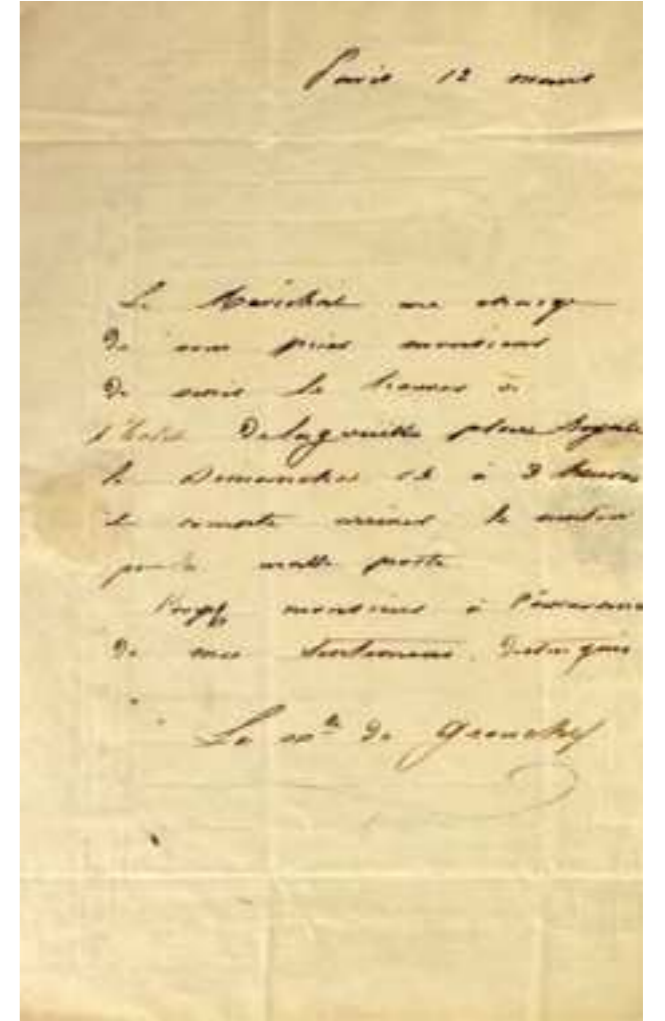 Paris 12 mars
Le Maréchal me charge
de vous prier monsieur
de vous le à
l'hotel place Royale
le Dimanche à 3 heures
il compte arriver le matin
par la malle poste
monsieur à l'assurance
de mes sentimens distingués
La de Grouchy